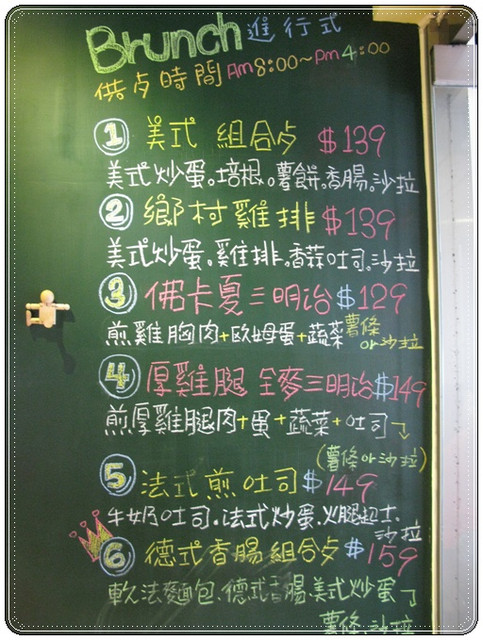 Brunch 進行式
供歺時間 Am 8:00~Pm 4:00
1 美式 組合歺 $139
美式炒蛋。培根。薯餅。香腸。沙拉
2 鄉村雞排 $139
美式炒蛋。雞排。香蒜吐司。沙拉
3 佛卡夏三明治 $129
煎雞胸肉+歐姆蛋+蔬菜 薯條
or沙拉
4 厚雞腿 全麥三明治 $149
煎厚雞腿肉+蛋+蔬菜+吐司
(薯條or沙拉)
5 法式煎吐司 $149
牛奶吐司.法式炒蛋.火腿起士.
沙拉
6 德式香腸組合歺 $159
軟法麵包.德式香腸.美式炒蛋
薯條.沙拉